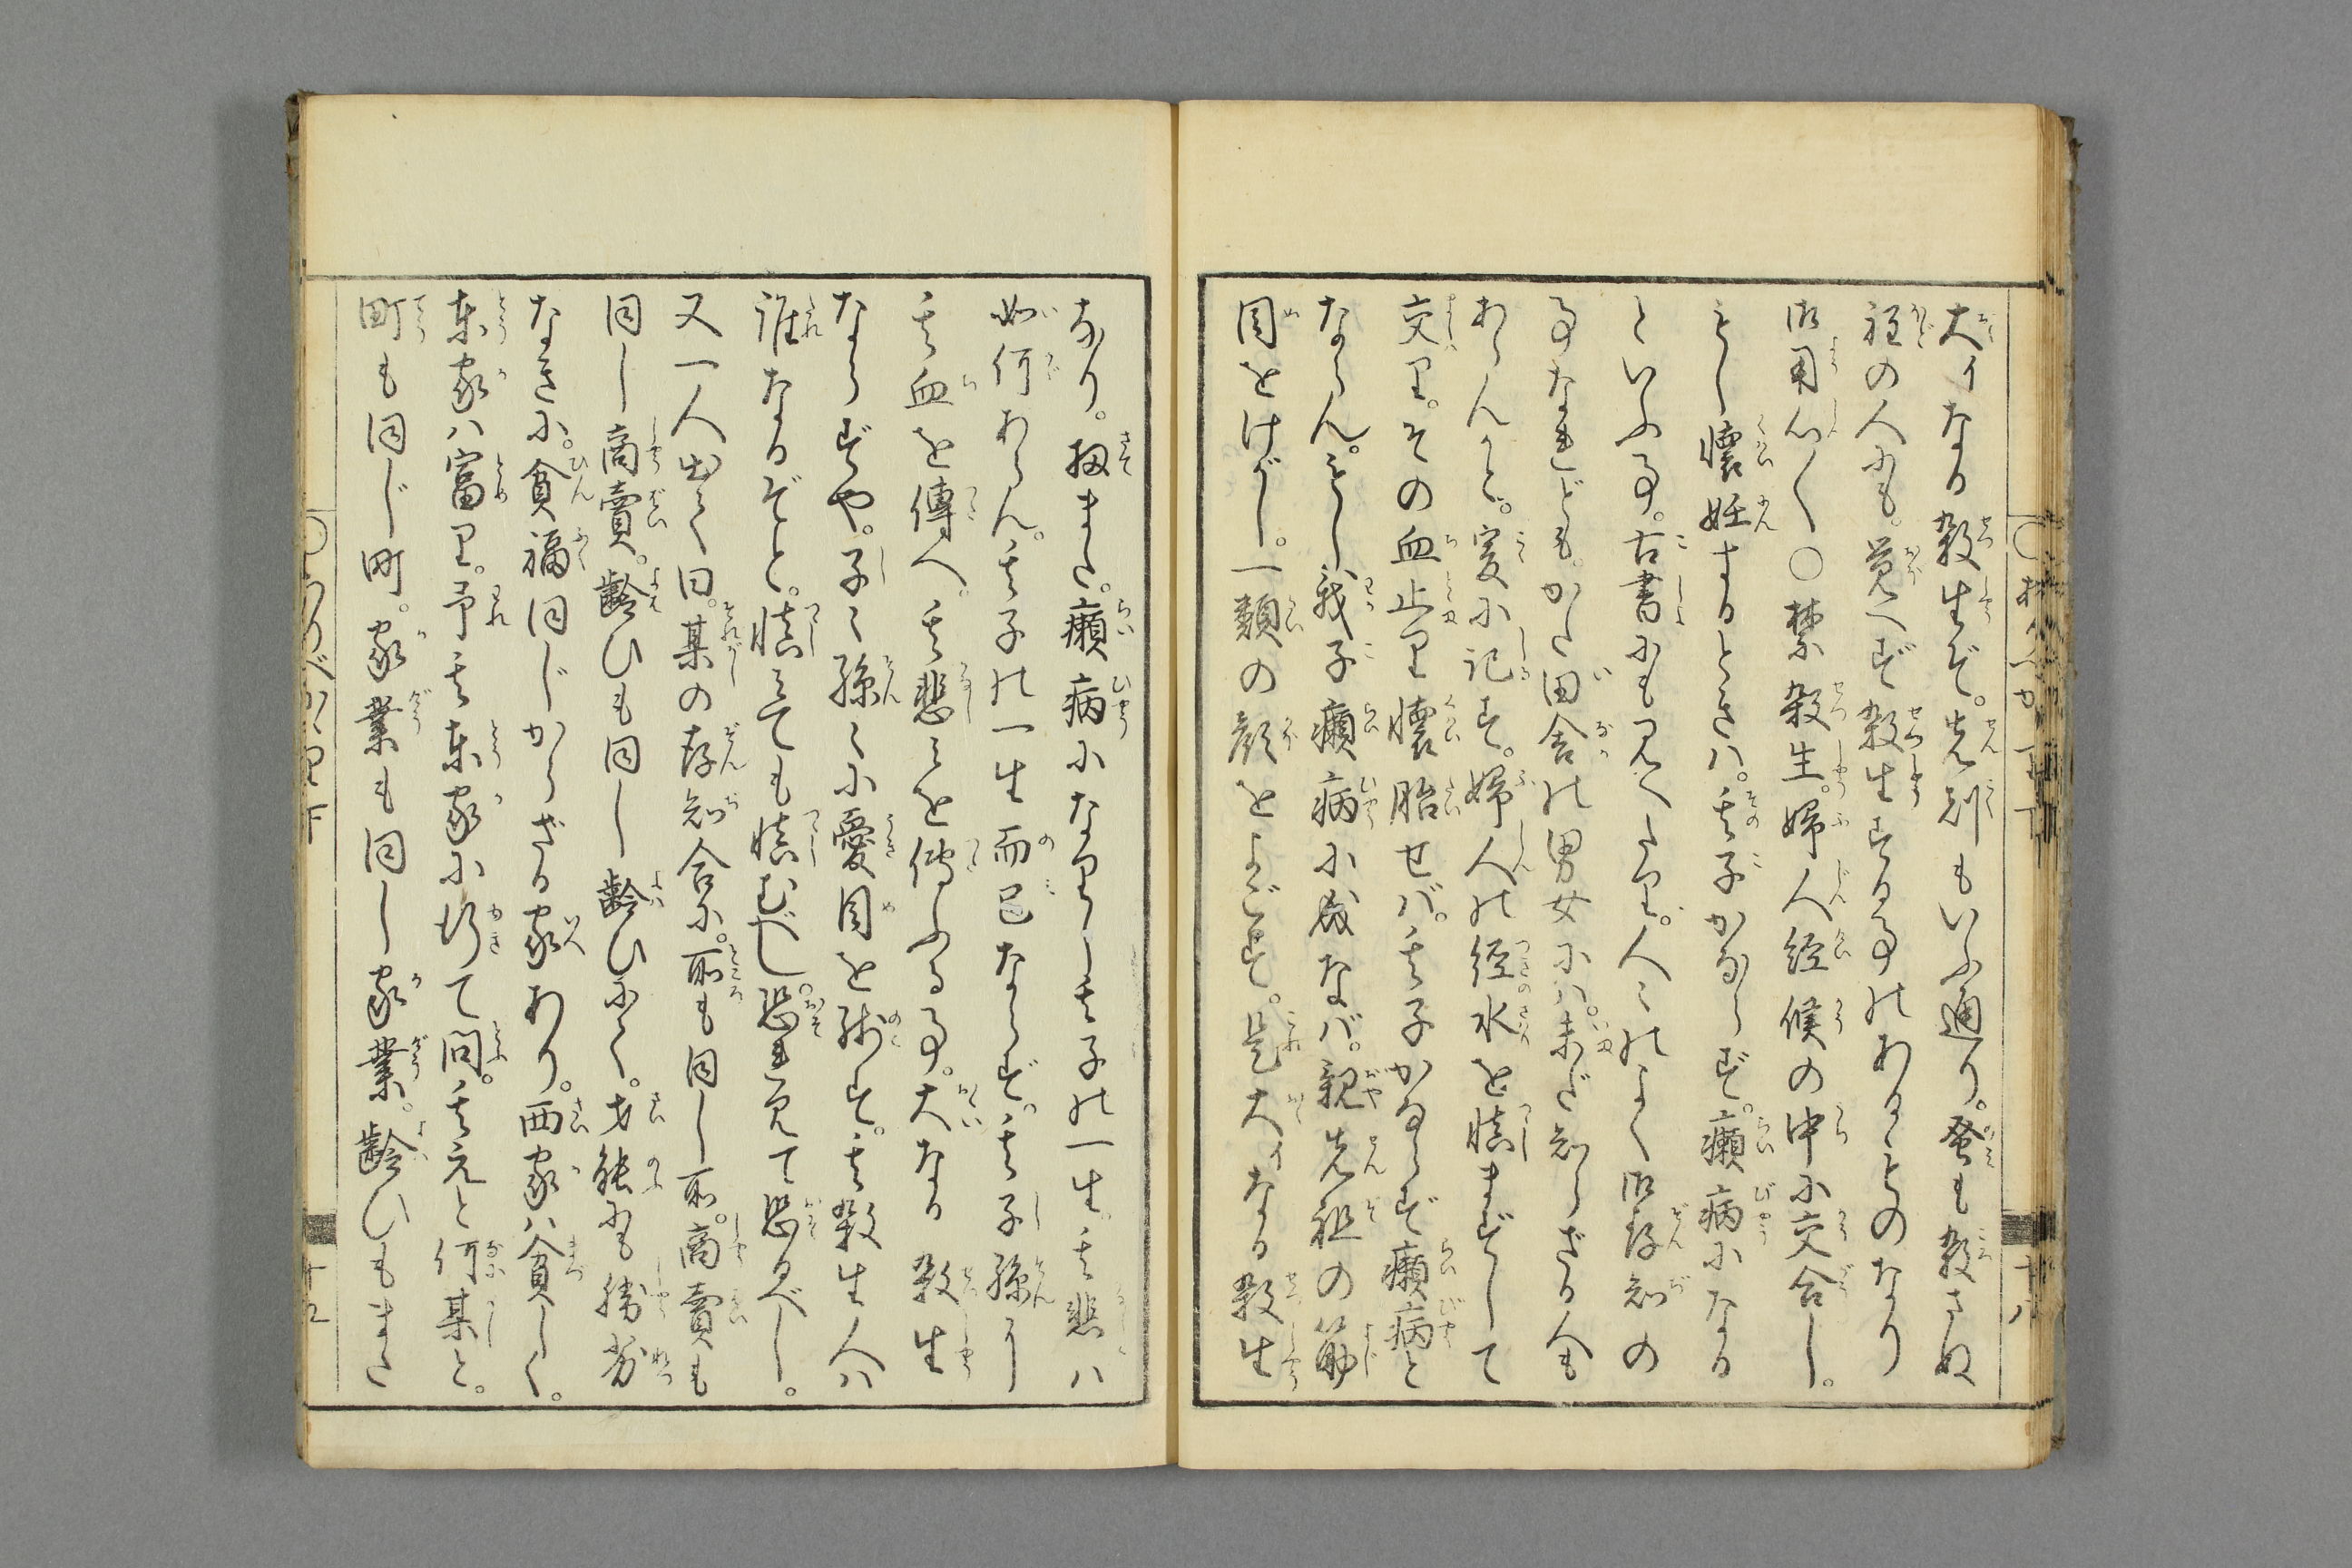 大イなる殺生ぞ。先刻もいふ通り。蚤も殺さぬ
程の人にも。覚へず殺生する事のあるものなり
御用心〳〵○禁殺生。婦人経候の中に交合し。
もし懐妊するときハ。其子かならず。癩病になる
といふ事。古書にも見へたり。人〻のよく御存知の
事なれども。かた田舎の男女にハ。未だ知らざる人も
あらんかと。爰に記す。婦人の経水を慎まずして
交り。その血止り懐胎せバ。其子かならず癩病と
ならん。もし我子癩病に成なバ。親先祖の筋
目をけがし。一類の顔をよごす。是大イなる殺生
なり。扨また。癩病になりし其子の一生。其悲ハ
如何あらん。其子の一生而已ならず。其子孫に
其血を傳へ。其悲みを傳ふる事。大なる殺生
ならずや。子〻孫〻に憂目を残す。其殺生人ハ
誰なるぞと。慎みても慎むべし。恐れ見て恐るべし。
又一人出て曰。某の存知合に。所も同し所。商賣も
同し商賣。齢ひも同し齢ひにて。才能にも勝劣
なきに。貧福同じからざる家あり。西家ハ貧しく。
東家ハ富り。予其東家に行て問。其元と何某と。
町も同じ町。家業も同し家業。齢ひもまた
十八
下